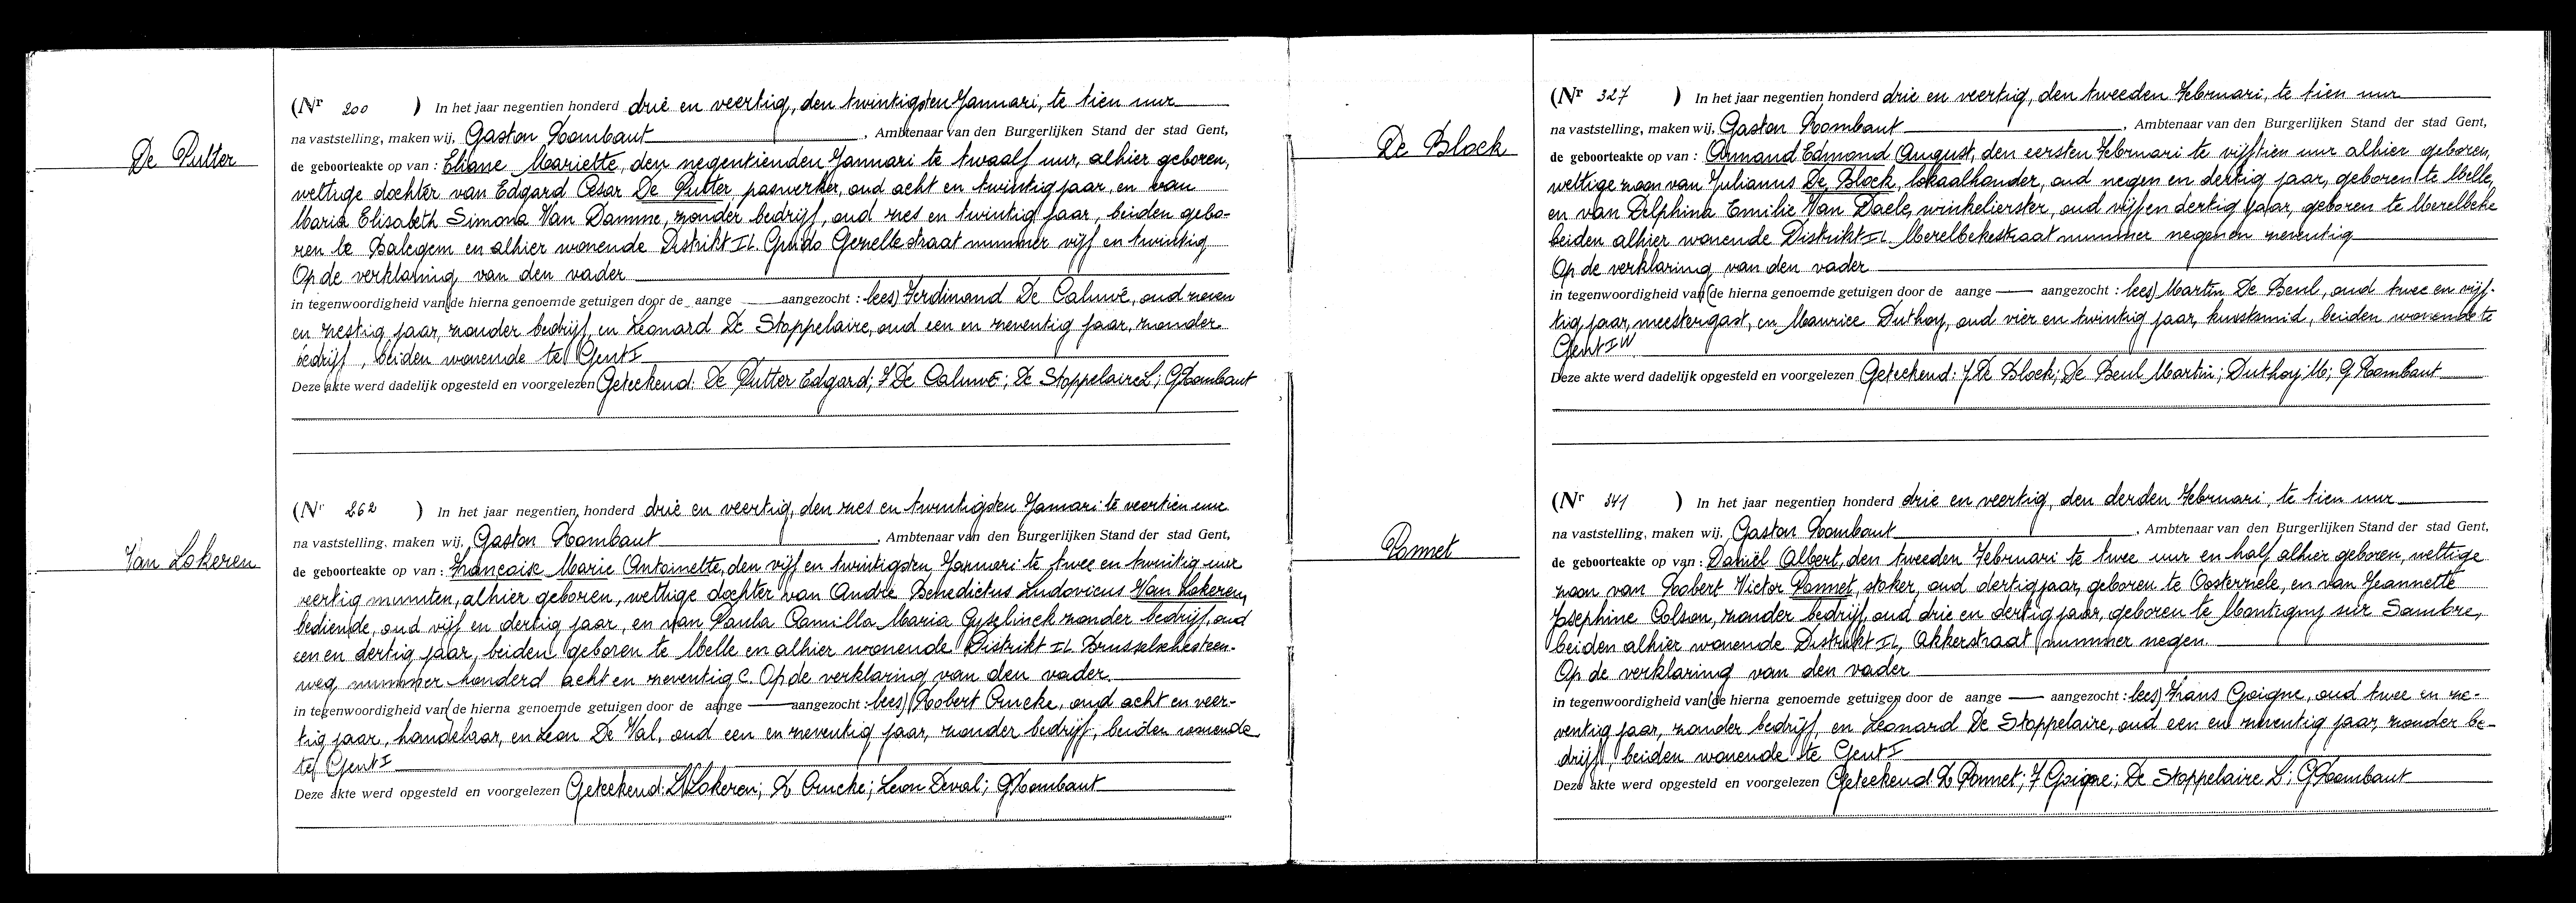 De Putter
(Nr 200 ) In het jaar negentien honderd drie en veertig, den twintigsten Januari, te tien uur
na vaststelling, maken wij, Gaston Rombaut, Ambtenaar van den Burgerlijken Stand der stad Gent,
de geboorteakte op van : Eliane Mariette, den negentienden Januari te twaalf uur, alhier geboren,
wettige dochter van Edgard Cesar De Putter, paswerker, oud acht en twintig jaar, en van
Maria Elisabeth Simona Van Damme, zonder bedrijf, oud zes en twintig jaar, beiden gebo-
ren te Balegem en alhier wonende Distrikt II. Guido Gezellestraat nummer vijf en twintig
Op de verklaring van den vader
in tegenwoordigheid van (de hierna genoemde getuigen door de aange aangezocht : lees) Ferdinand De Caluwé, oud zeven
en zestig jaar, zonder bedrijf, en Leonard De Stoppelaire, oud een en zeventig jaar, zonder
bedrijf, beiden wonende te Gent I
Deze akte werd dadelijk opgesteld en voorgelezen Geteekend: De Putter Edgard; F De Caluwé; De Stoppelaire L; G Rombaut
Van Lokeren
(Nr 262 ) In het jaar negentien honderd drie en veertig, den zes en twintigsten Januari te veertien uur
na vaststelling, maken wij, Gaston Rombaut, Ambtenaar van den Burgerlijken Stand der stad Gent,
de geboorteakte op van : Françoise Marie Antoinette, den vijf en twintigsten Januari te twee en twintig uur
veertig minuten, alhier geboren, wettige dochter van André Benedictus Ludovicus Van Lokeren,
bediende, oud vijf en dertig jaar, en van Paula Camilla Maria Gyselinck zonder bedrijf, oud
een en dertig jaar, beiden geboren te Melle en alhier wonende Distrikt II Brusselschesteen-
weg nummer honderd acht en zeventig C. Op de verklaring van den vader.
in tegenwoordigheid van (de hierna genoemde getuigen door de aange aangezocht : lees) Robert Crucke, oud acht en veer-
tig jaar, handelaar, en Leon De Val, oud een en zeventig jaar, zonder bedrijf, beiden wonende
te Gent I
Deze akte werd opgesteld en voorgelezen Geteekend: Lokeren; R Crucke; Leon Deval; G Rombaut
De Block
(Nr 327 ) In het jaar negentien honderd drie en veertig, den tweeden Februari, te tien uur
na vaststelling, maken wij, Gaston Rombaut, Ambtenaar van den Burgerlijken Stand der stad Gent,
de geboorteakte op van : Armand Edmond August, den eersten Februari te vijftien uur alhier geboren,
wettige zoon van Julianus De Block, lokaalhouder, oud negen en dertig jaar, geboren te Melle,
en van Delphina Emilie Van Daele, winkelierster, oud vijf en dertig jaar, geboren te Merelbeke
beiden alhier wonende Distrikt II. Merelbekestraat nummer negen en zeventig
Op de verklaring van den vader
in tegenwoordigheid van (de hierna genoemde getuigen door de aange aangezocht : lees) Martin De Beul, oud twee en vijf-
tig jaar, meestergast, en Maurice Duthoy, oud vier en twintig jaar, kunstsmid, beiden wonende te
Gent
Deze akte werd dadelijk opgesteld en voorgelezen Geteekend: J. De Block; De Beul Martin; Duthoy M; G Rombaut
Pannet
(Nr 341 ) In het jaar negentien honderd drie en veertig, den derden Februari, te tien uur
na vaststelling, maken wij, Gaston Rombaut, Ambtenaar van den Burgerlijken Stand der stad Gent,
de geboorteakte op van : Daniël Albert, den tweeden Februari te twee uur en half alhier geboren, wettige
zoon van Robert Victor Pannet, stoker, oud dertig jaar, geboren te Oosterzele, en van Jeannette
Josephine Colson, zonder bedrijf, oud drie en dertig jaar, geboren te Montigny sur Sambre,
beiden alhier wonende Distrikt II, Akkerstraat nummer negen.
Op de verklaring van den vader
in tegenwoordigheid van (de hierna genoemde getuigen door de aange aangezocht : lees) Frans Goigne, oud twee en ze-
ventig jaar, zonder bedrijf, en Leonard De Stoppelaire, oud een en zeventig jaar, zonder be-
drijf, beiden wonende te Gent I
Deze akte werd opgesteld en voorgelezen Geteekend: R Pannet; F Goigne; De Stoppelaire L; G Rombaut